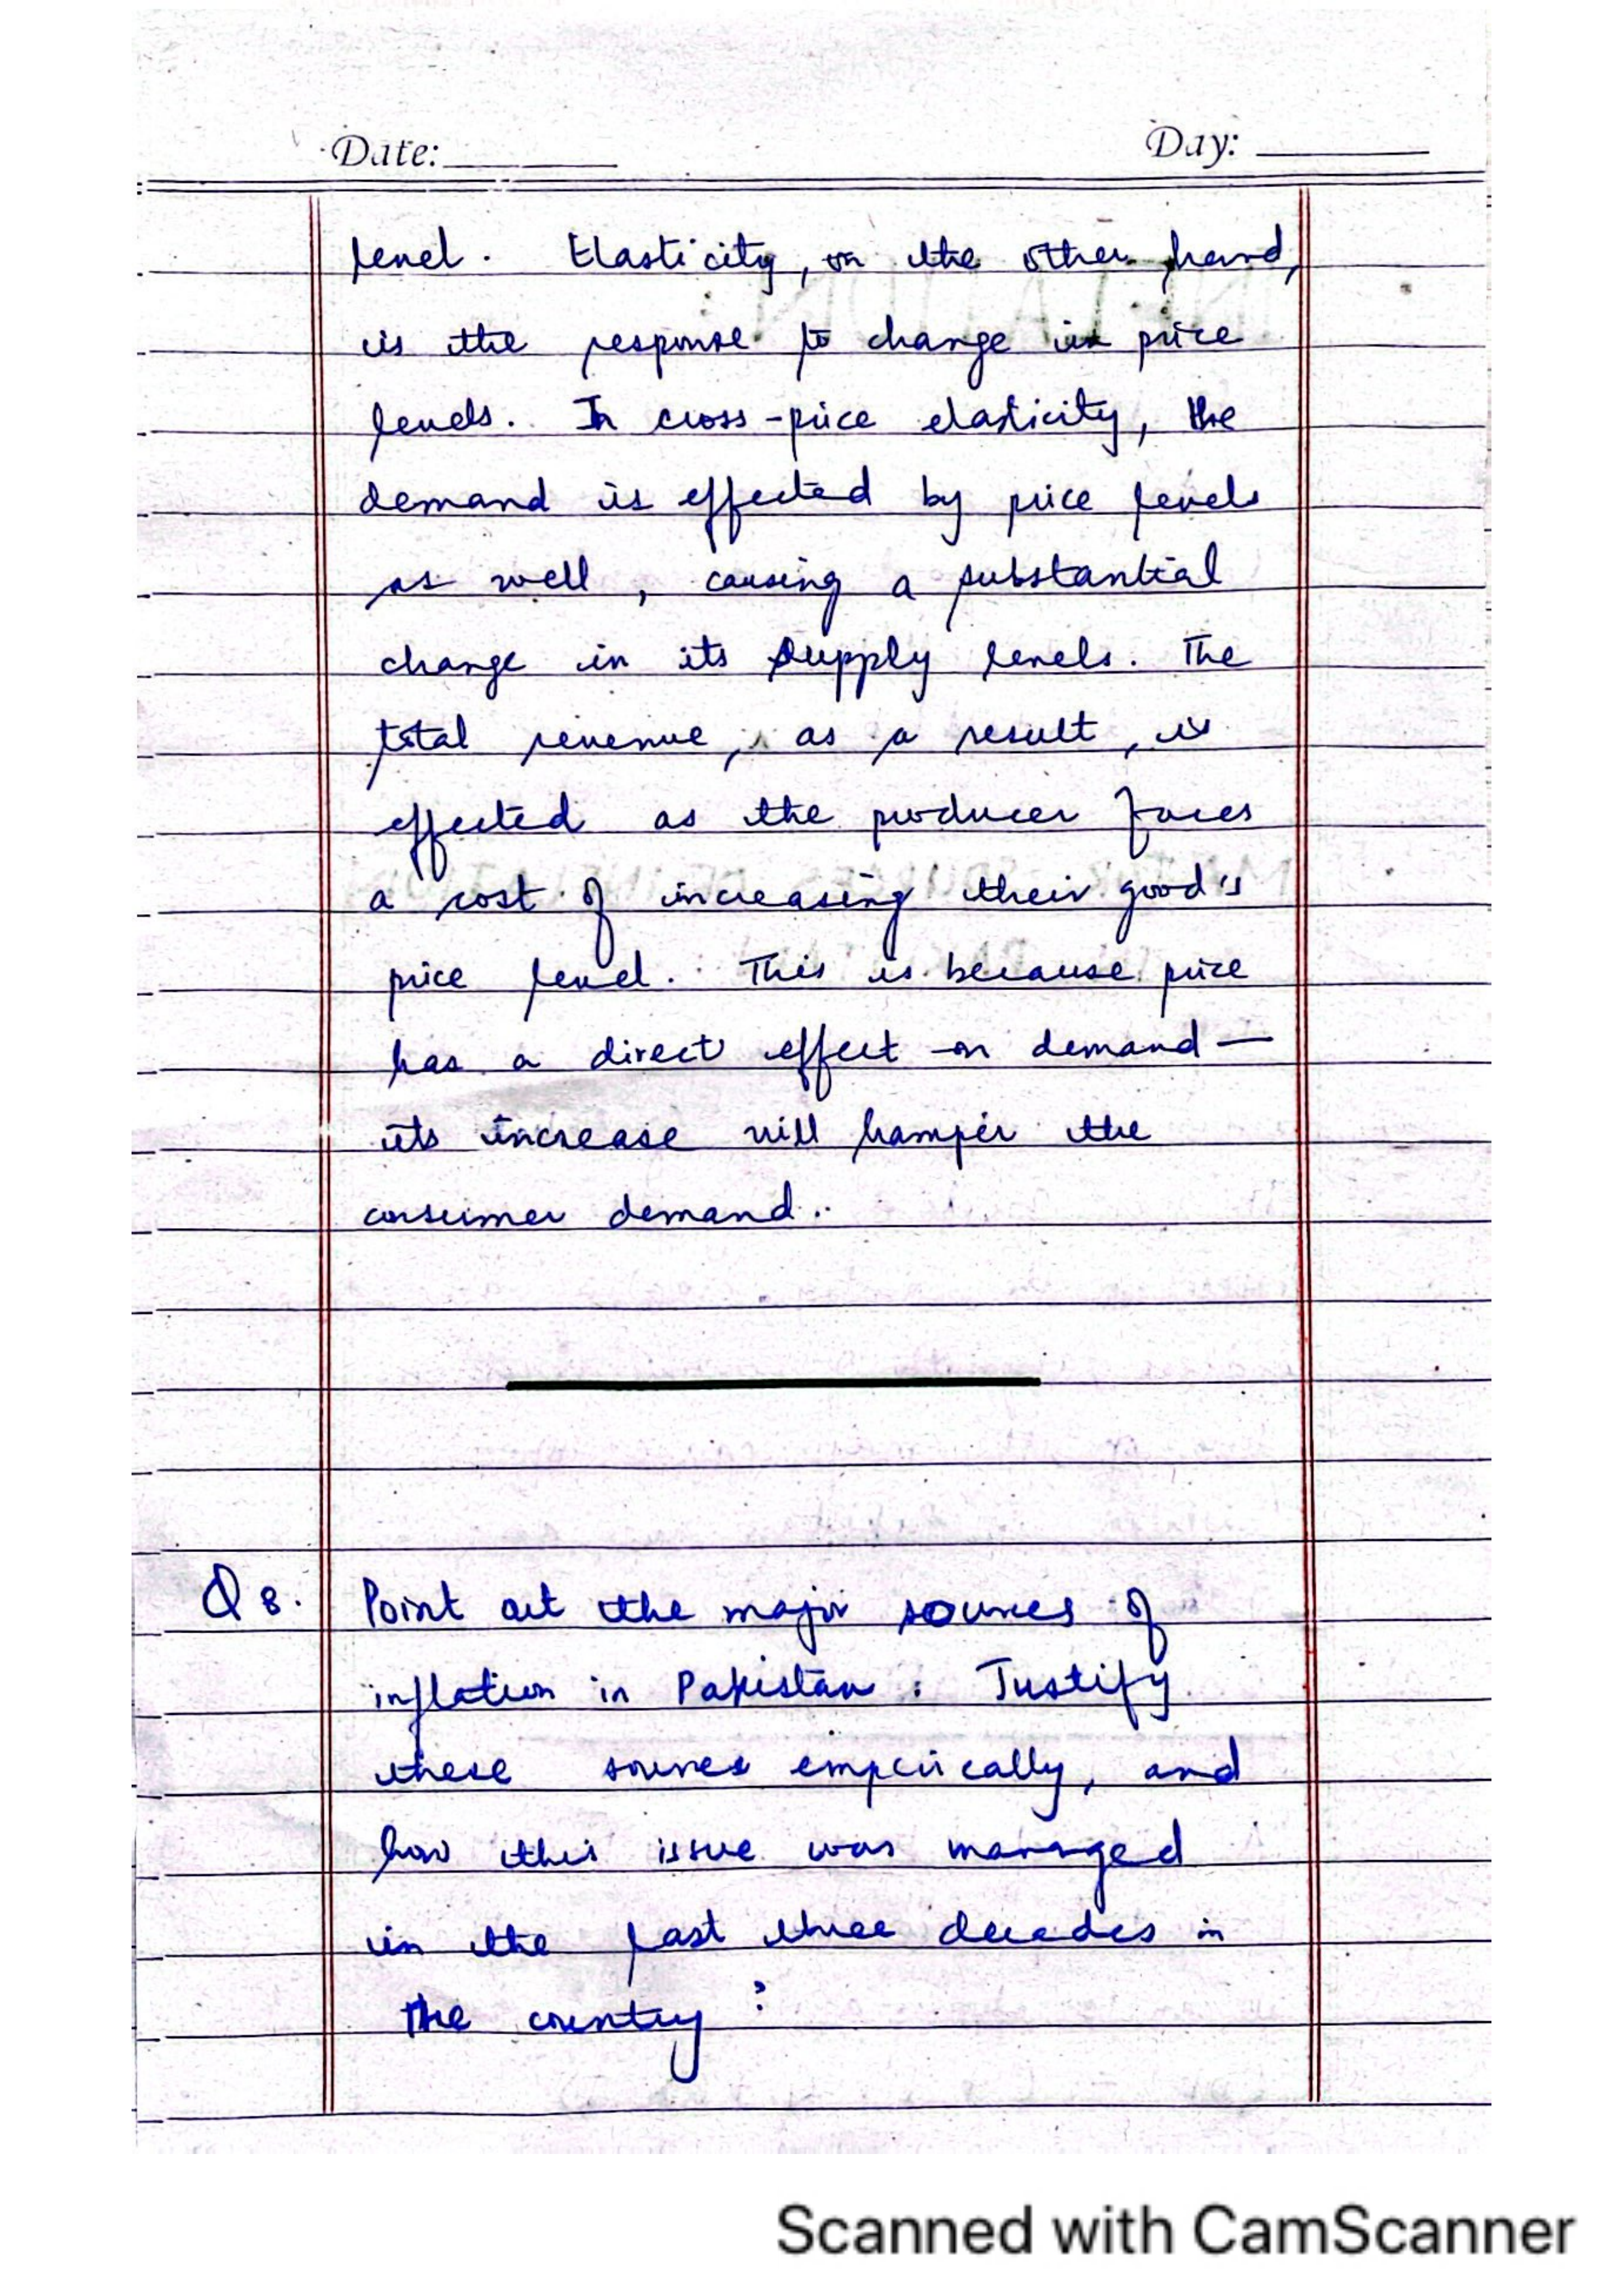 Date: Day:
level. Elasticity, on the other hand,
is the response to change in price
levels. In cross-price elasticity, the
demand is effected by price levels
as well, causing a substantial
change in its supply levels. The
total revenue, as a result, is
effected as the producer faces
a cost of increasing their good's
price level. This is because price
has a direct effect on demand —
its increase will hamper the
consumer demand.
Q 8. Point out the major sources of
inflation in Pakistan. Justify
these sources empirically, and
how this issue was managed
in the last three decades in
the country?
Scanned with CamScanner